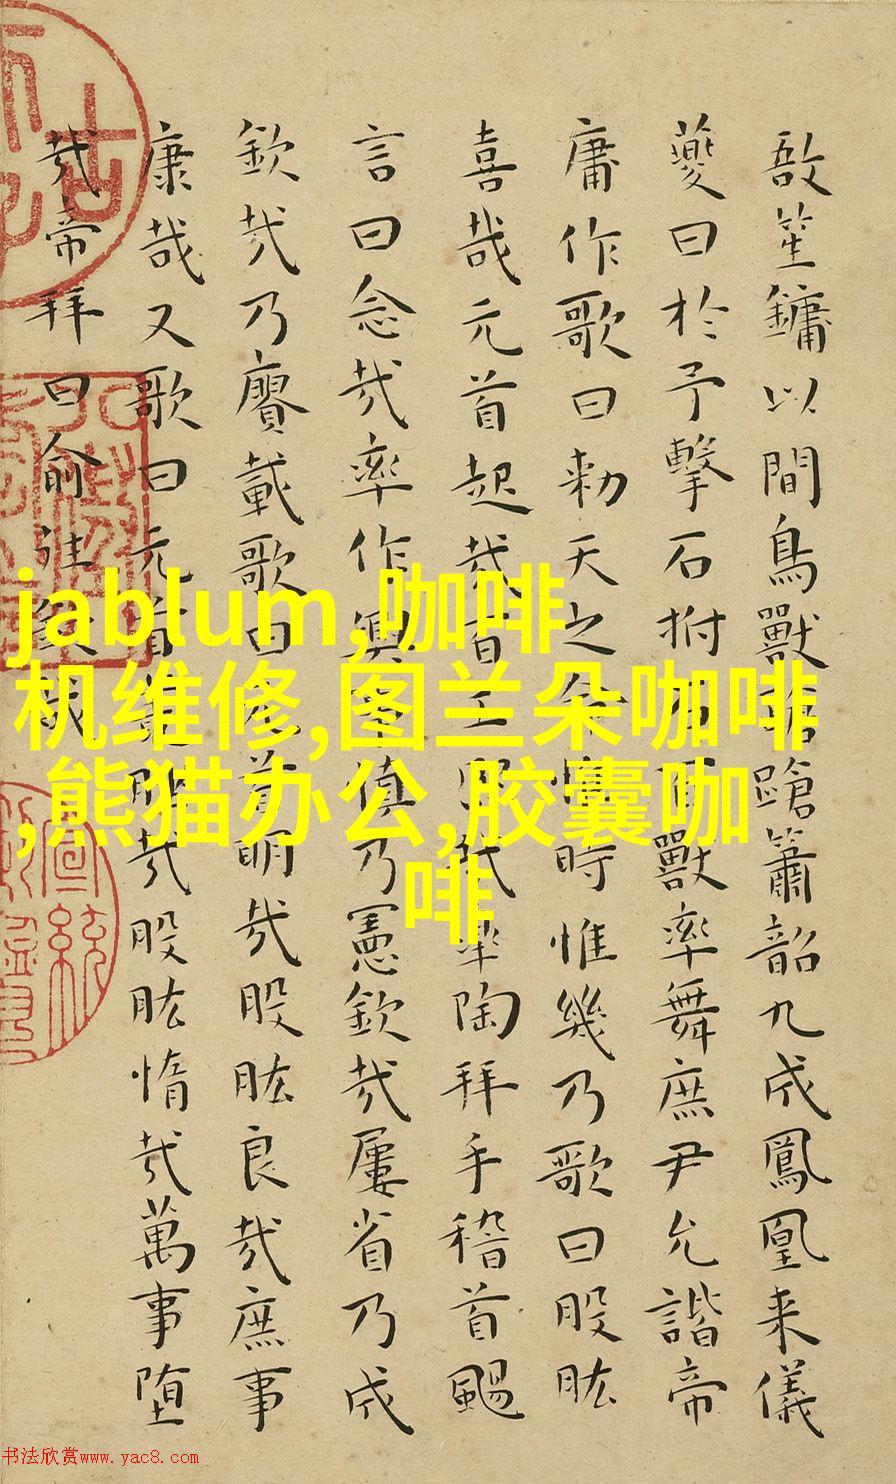 敔笙鏞以間鳥獸蹌蹌簫韶九成鳳凰来儀
夔曰於予擊石拊石百獸率舞庶尹允諧帝
庸作歌曰勑天之命惟時惟幾乃歌曰股肱
喜哉元首起哉百工熙哉皋陶拜手稽首颺
言曰念哉率作興事慎乃憲欽哉屢省乃成
欽哉乃賡載歌曰元首明哉股肱良哉庶事
康哉又歌曰元首叢脞哉股肱惰哉萬事堕
哉帝拜曰俞往欽哉
jablum,咖啡
机维修,图兰朵咖啡
,熊猫办公,胶囊咖
啡
书法欣赏www.yac8.com